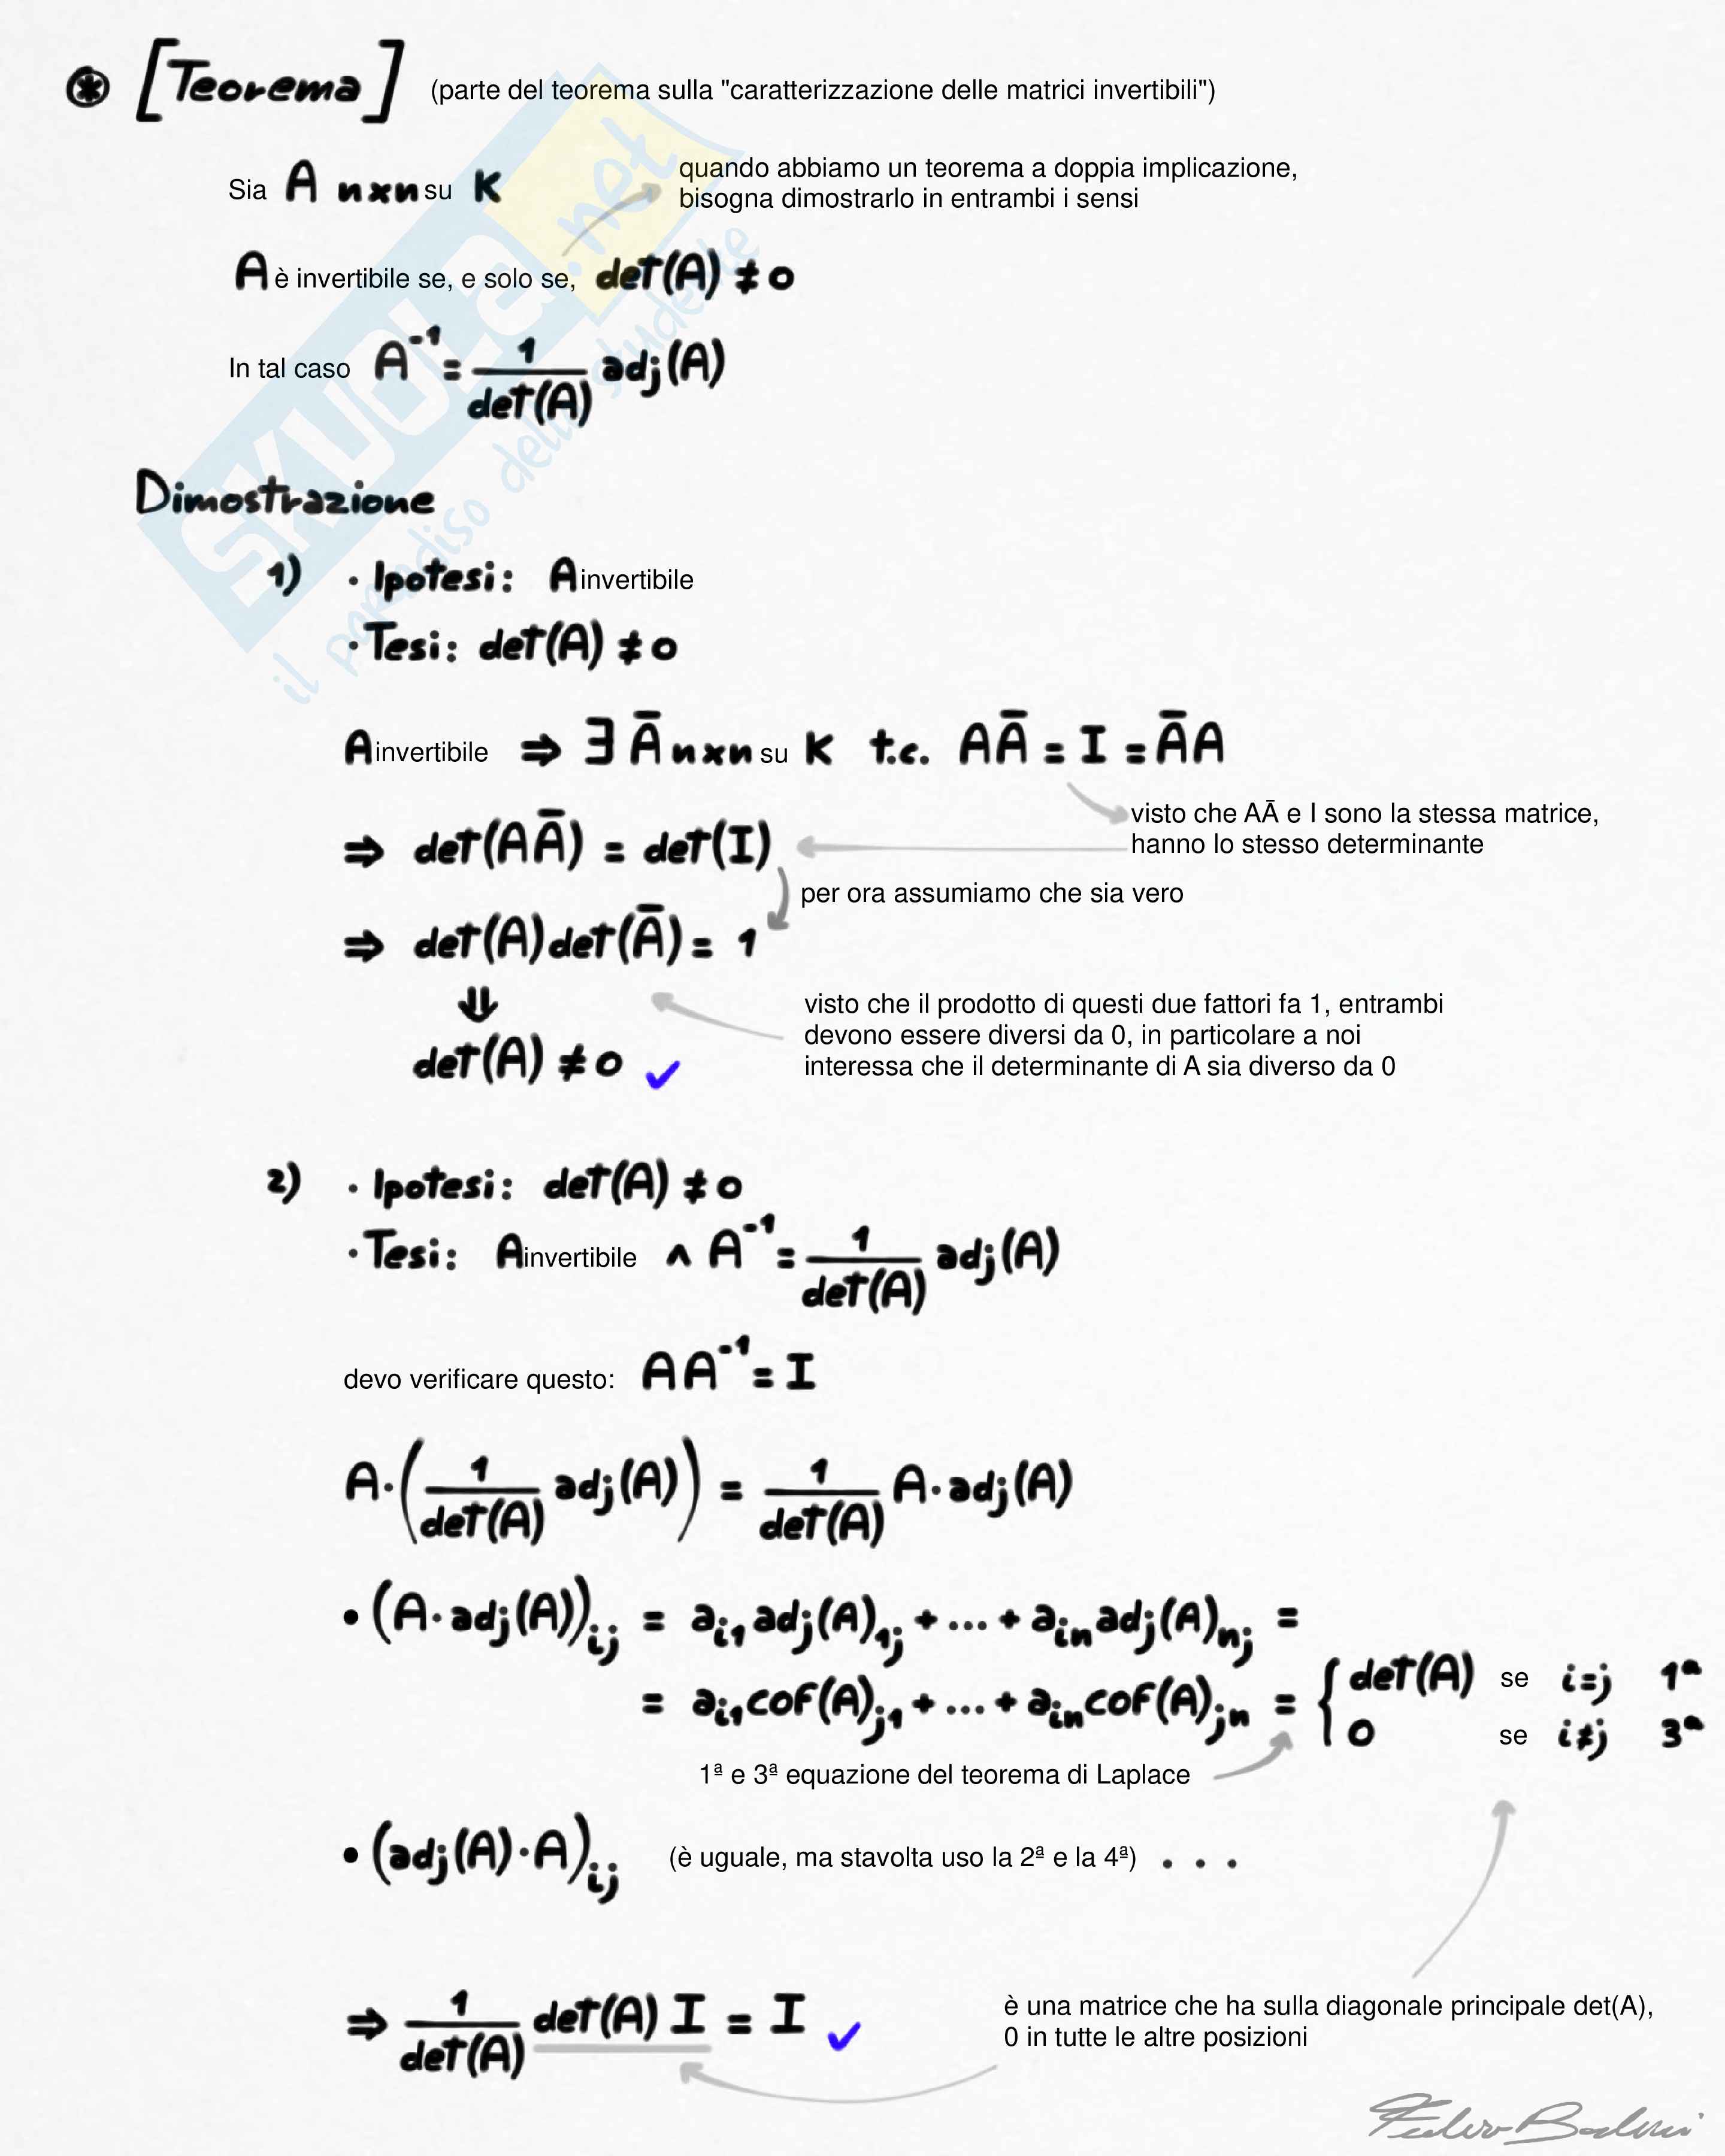 ⊛ [Teorema] (parte del teorema sulla "caratterizzazione delle matrici invertibili")
Sia A nxn su K
quando abbiamo un teorema a doppia implicazione,
bisogna dimostrarlo in entrambi i sensi
A è invertibile se, e solo se, det(A) ≠ 0
In tal caso A⁻¹ = 1/det(A) adj(A)
SKUOLA.net
il paradiso dello studente
Dimostrazione
1) · Ipotesi: A invertibile
· Tesi: det(A) ≠ 0
A invertibile ⇒ ∃ Ā nxn su K t.c. AĀ = I = ĀA
visto che AĀ e I sono la stessa matrice,
hanno lo stesso determinante
⇒ det(AĀ) = det(I)
per ora assumiamo che sia vero
⇒ det(A)det(Ā) = 1
⇓
visto che il prodotto di questi due fattori fa 1, entrambi
devono essere diversi da 0, in particolare a noi
interessa che il determinante di A sia diverso da 0
det(A) ≠ 0 ✓
2) · Ipotesi: det(A) ≠ 0
· Tesi: A invertibile ∧ A⁻¹ = 1/det(A) adj(A)
devo verificare questo: AA⁻¹ = I
A·(1/det(A) adj(A)) = 1/det(A) A·adj(A)
• (A·adj(A))ᵢⱼ = aᵢ₁adj(A)₁ⱼ + ... + aᵢₙadj(A)ₙⱼ =
= aᵢ₁cof(A)ⱼ₁ + ... + aᵢₙcof(A)ⱼₙ = { det(A) se i=j 1ª
0 se i≠j 3ª
1ª e 3ª equazione del teorema di Laplace
• (adj(A)·A)ᵢⱼ (è uguale, ma stavolta uso la 2ª e la 4ª) . . .
⇒ 1/det(A) det(A) I = I ✓
è una matrice che ha sulla diagonale principale det(A),
0 in tutte le altre posizioni